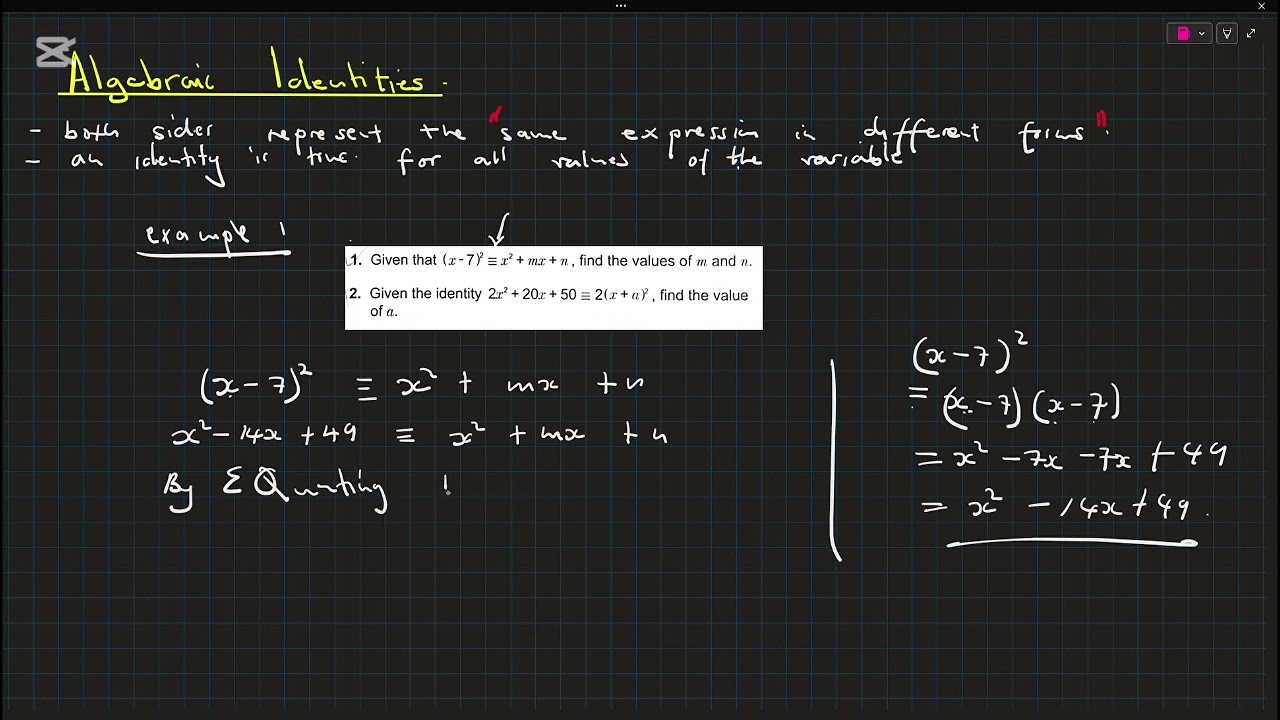 Algebraic Identities.
- both sides represent the "same expression in different forms".
- an identity is true for all values of the variable
example 1
1. Given that (x - 7)² ≡ x² + mx + n, find the values of m and n.
2. Given the identity 2x² + 20x + 50 ≡ 2(x + a)², find the value
of a.
(x - 7)² ≡ x² + mx + n
x² - 14x + 49 ≡ x² + mx + n
By EQuating
(x - 7)²
≡ (x - 7)(x - 7)
= x² - 7x - 7x + 49
= x² - 14x + 49.